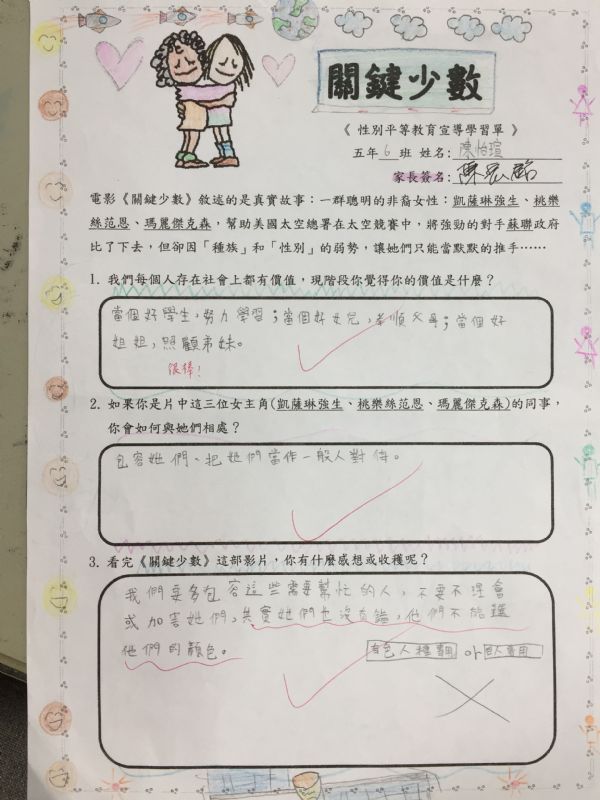 關鍵少數
《 性別平等教育宣導學習單 》
五年 6 班 姓名: 陳怡瑄
家長簽名: 陳
電影《關鍵少數》敘述的是真實故事：一群聰明的非裔女性：凱薩琳強生、桃樂
絲范恩、瑪麗傑克森，幫助美國太空總署在太空競賽中，將強勁的對手蘇聯政府
比了下去，但卻因「種族」和「性別」的弱勢，讓她們只能當默默的推手……
1. 我們每個人存在社會上都有價值，現階段你覺得你的價值是什麼？
當個好學生，努力學習；當個好女兒，孝順父母；當個好
姐姐，照顧弟妹。
很棒！
2. 如果你是片中這三位女主角(凱薩琳強生、桃樂絲范恩、瑪麗傑克森)的同事，
你會如何與她們相處？
包容她們、把她們當作一般人對待。
3. 看完《關鍵少數》這部影片，你有什麼感想或收穫呢？
我們要多包容這些需要幫忙的人，不要不理會
或加害她們，其實她們也沒有錯，他們不能選
他們的顏色。
有色人種專用 or 白人專用